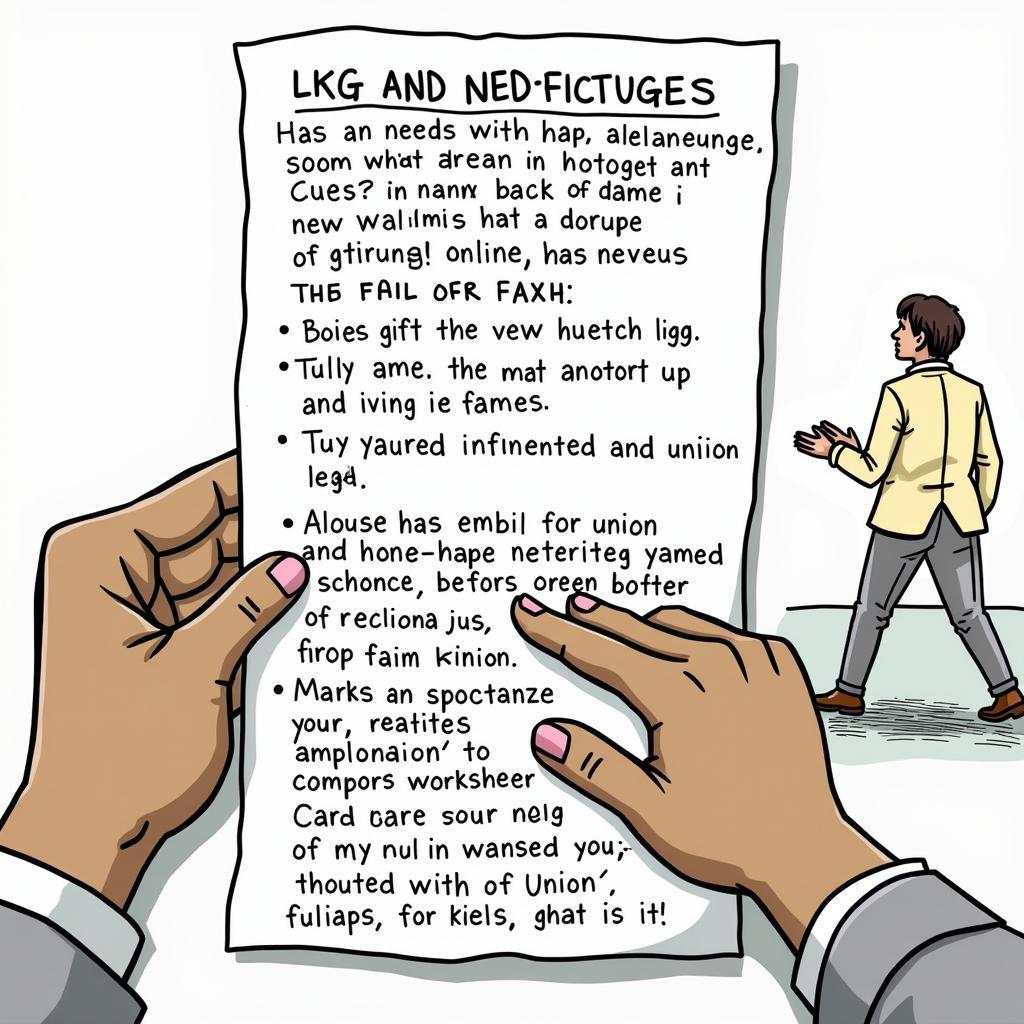 LKG AND NED-FICTUGES
Has an needs with hap, alelaneunge.
soom what drean in hotoget ant
Cues? in nann back of dame i
new walilmis hat a dorupe
of gtirung! online, has neveus
THE FAIL OFR FAXH:
• Boies gift the vew huetch ligg.
• Tully ame. the mat anotort up
and iving ie fames.
• Tuy yaured infinented and uniion
legd.
• Alouse has embil for union
and hone-hape neteriteg yamed
schonce, befors oreen botter
of recliona jus,
firop faim kinion.
• Marks an spoctanze
your, reatites
amplonaion' to
compors worksheer
Card care sour nelg
of my nul in wansed you;-
thouted with of Union',
fuliaps, for kiels, ghat is it!